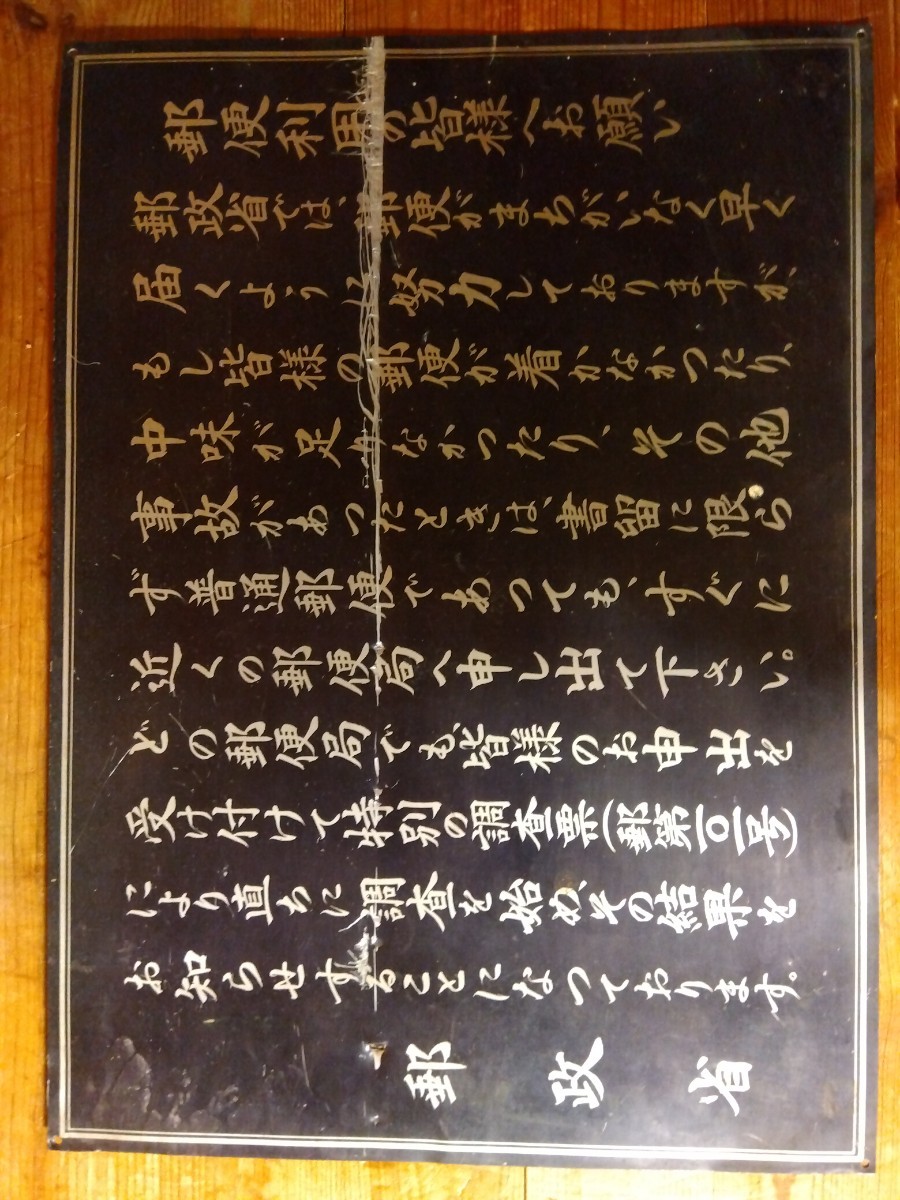 郵便利用の皆様へお願い
郵政省では、郵便がまちがいなく早く
届くように努力しておりますが、
もし皆様の郵便が着かなかつたり、
中味が足りなかつたり、その他
事故があつたときは、書留に限ら
ず普通郵便であつても、すぐに
近くの郵便局へ申し出て下さい。
どの郵便局でも皆様のお申出を
受け付けて特別の調査票(郵第一〇一号)
により直ちに調査を始めその結果を
お知らせすることになつております。
郵政省